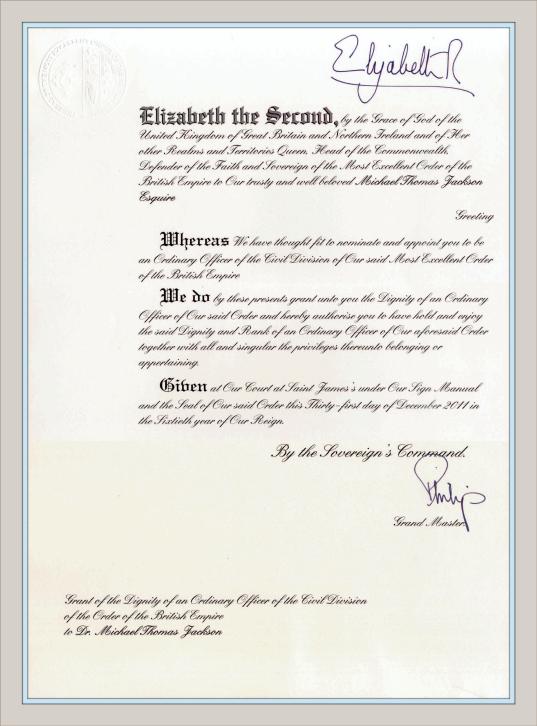 Elizabeth R
Elizabeth the Second, by the Grace of God of the
United Kingdom of Great Britain and Northern Ireland and of Her
other Realms and Territories Queen, Head of the Commonwealth,
Defender of the Faith and Sovereign of the Most Excellent Order of the
British Empire to Our trusty and well beloved Michael Thomas Jackson
Esquire
Greeting
Whereas We have thought fit to nominate and appoint you to be
an Ordinary Officer of the Civil Division of Our said Most Excellent Order
of the British Empire
We do by these presents grant unto you the Dignity of an Ordinary
Officer of Our said Order and hereby authorise you to have hold and enjoy
the said Dignity and Rank of an Ordinary Officer of Our aforesaid Order
together with all and singular the privileges thereunto belonging or
appertaining.
Given at Our Court at Saint James's under Our Sign Manual
and the Seal of Our said Order this Thirty-first day of December 2011 in
the Sixtieth year of Our Reign.
By the Sovereign's Command.
Philip
Grand Master.
Grant of the Dignity of an Ordinary Officer of the Civil Division
of the Order of the British Empire
to Dr. Michael Thomas Jackson